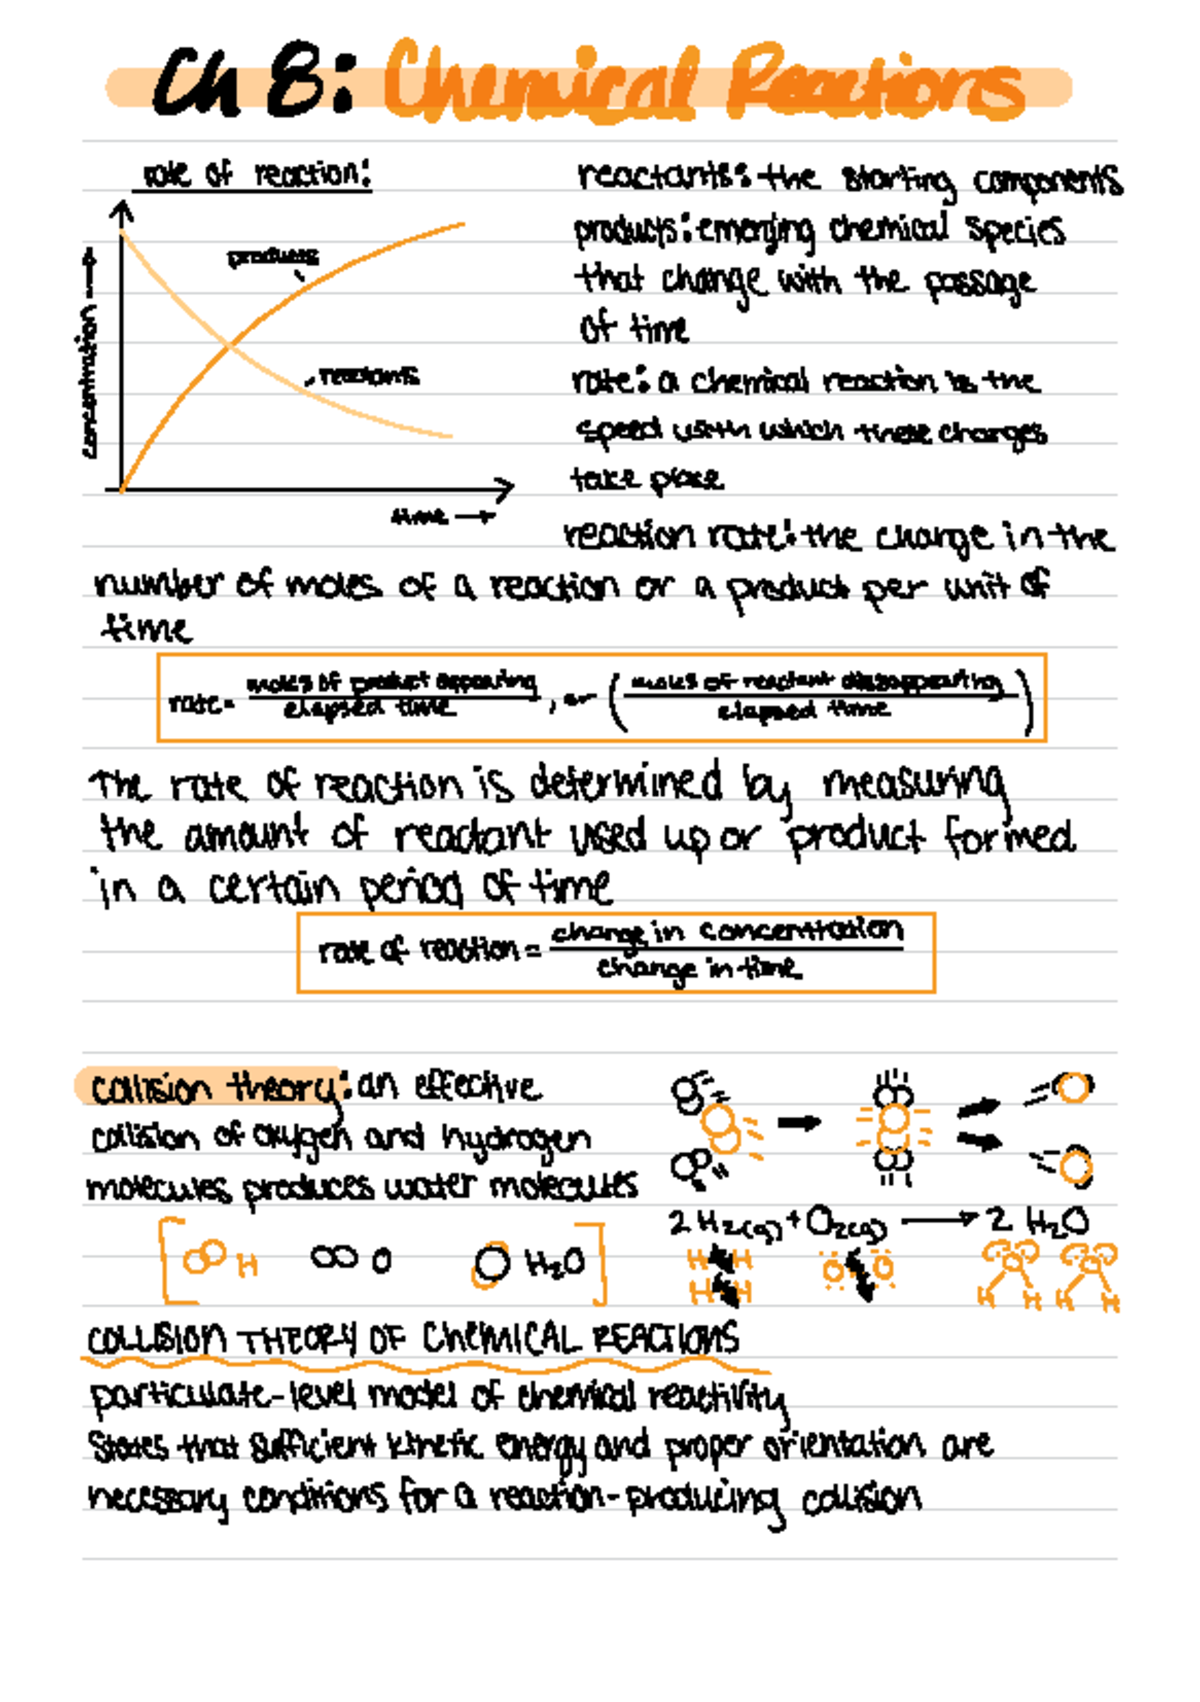 Ch 8: Chemical Reactions
rate of reaction:
concentration →
products
reactants
time →
reactants: the starting components
products: emerging chemical species
that change with the passage
of time
rate: a chemical reaction is the
speed with which these changes
take place
reaction rate: the change in the
number of moles of a reaction or a product per unit of
time
rate = moles of product appearing / elapsed time , or ( moles of reactant disappearing / elapsed time )
The rate of reaction is determined by measuring
the amount of reactant used up or product formed
in a certain period of time
rate of reaction = change in concentration / change in time
collision theory: an effective
collision of oxygen and hydrogen
molecules produces water molecules
H O H₂O
2 H₂(g) + O₂(g) → 2 H₂O
H H O O
H H
H H H H
COLLISION THEORY OF CHEMICAL REACTIONS
particulate-level model of chemical reactivity
States that sufficient kinetic energy and proper orientation are
necessary conditions for a reaction-producing collision